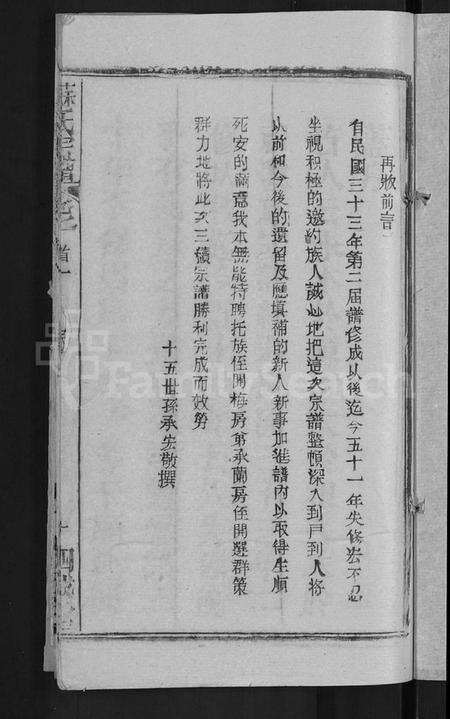 再牧前言
自民國三十三年第二届譜修成以後迄今五十一年失修宏不忍
坐視积極的邀約族人誠心地把這次宗譜整頓深入到戸到人将
以前和今後的遺留及應填補的新人新事加進譜内以取得生順
死安的 我本無能特聘托族侄開梅房弟承蘭房侄開選群策
群力地將此次三續宗譜勝利完成而效勞
十五世孫承宏敬撰
蘇氏宗譜 卷一 首